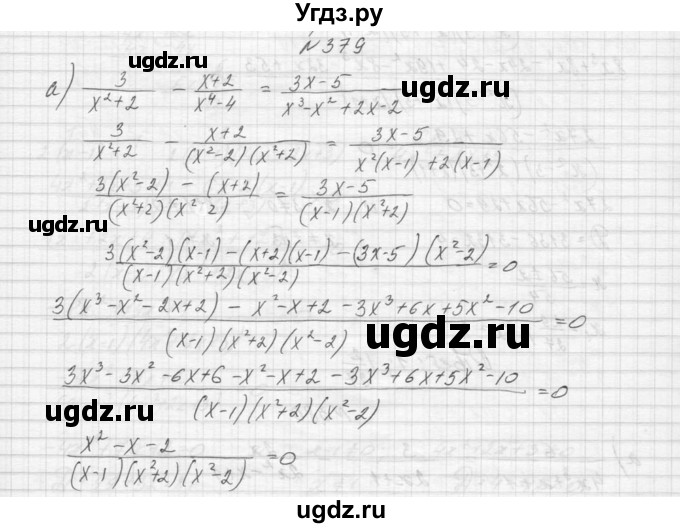 Угдз.ру
№379
а) 3/(x²+2) − (x+2)/(x⁴−4) = (3x−5)/(x³−x²+2x−2)
ugdz.ru
3/(x²+2) − (x+2)/((x²−2)(x²+2)) = (3x−5)/(x²(x−1)+2(x−1))
(3(x²−2) − (x+2))/((x²+2)(x²−2)) = (3x−5)/((x−1)(x²+2))
ugdz.ru
(3(x²−2)(x−1) − (x+2)(x−1) − (3x−5)(x²−2))/((x−1)(x²+2)(x²−2)) = 0
(3(x³−x²−2x+2) − x²−x+2 −3x³+6x+5x²−10)/((x−1)(x²+2)(x²−2)) = 0
ugdz.ru
(3x³−3x²−6x+6−x²−x+2−3x³+6x+5x²−10)/((x−1)(x²+2)(x²−2)) = 0
ugdz.ru
ugdz.ru
(x²−x−2)/((x−1)(x²+2)(x²−2)) = 0
ugdz.ru